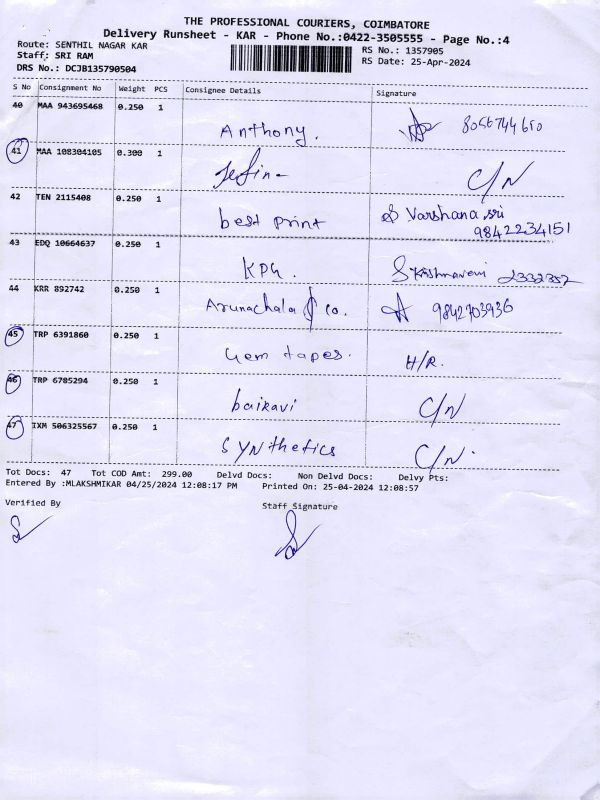 THE PROFESSIONAL COURIERS, COIMBATORE
Delivery Runsheet - KAR - Phone No.:0422-3505555 - Page No.:4
Route: SENTHIL NAGAR KAR
Staff: SRI RAM
DRS No.: DCJB135790504
RS No.: 1357905
RS Date: 25-Apr-2024
S No Consignment No Weight PCS Consignee Details Signature
40 MAA 943695468 0.250 1 Anthony.
41 MAA 108304105 0.300 1 C/N
42 TEN 2115408 0.250 1 best print S Varshana sri
9842234151
43 EDQ 10664637 0.250 1 KPG. 2332352
44 KRR 892742 0.250 1 Arunachala & co. 9842703936
45 TRP 6391860 0.250 1 Gem tapes. H/R.
46 TRP 6785294 0.250 1 bairavi C/N
47 IXM 506325567 0.250 1 SYNthetics C/N.
Tot Docs: 47 Tot COD Amt: 299.00 Delvd Docs: Non Delvd Docs: Delvy Pts:
Entered By :MLAKSHMIKAR 04/25/2024 12:08:17 PM Printed On: 25-04-2024 12:08:57
Verified By
Staff Signature